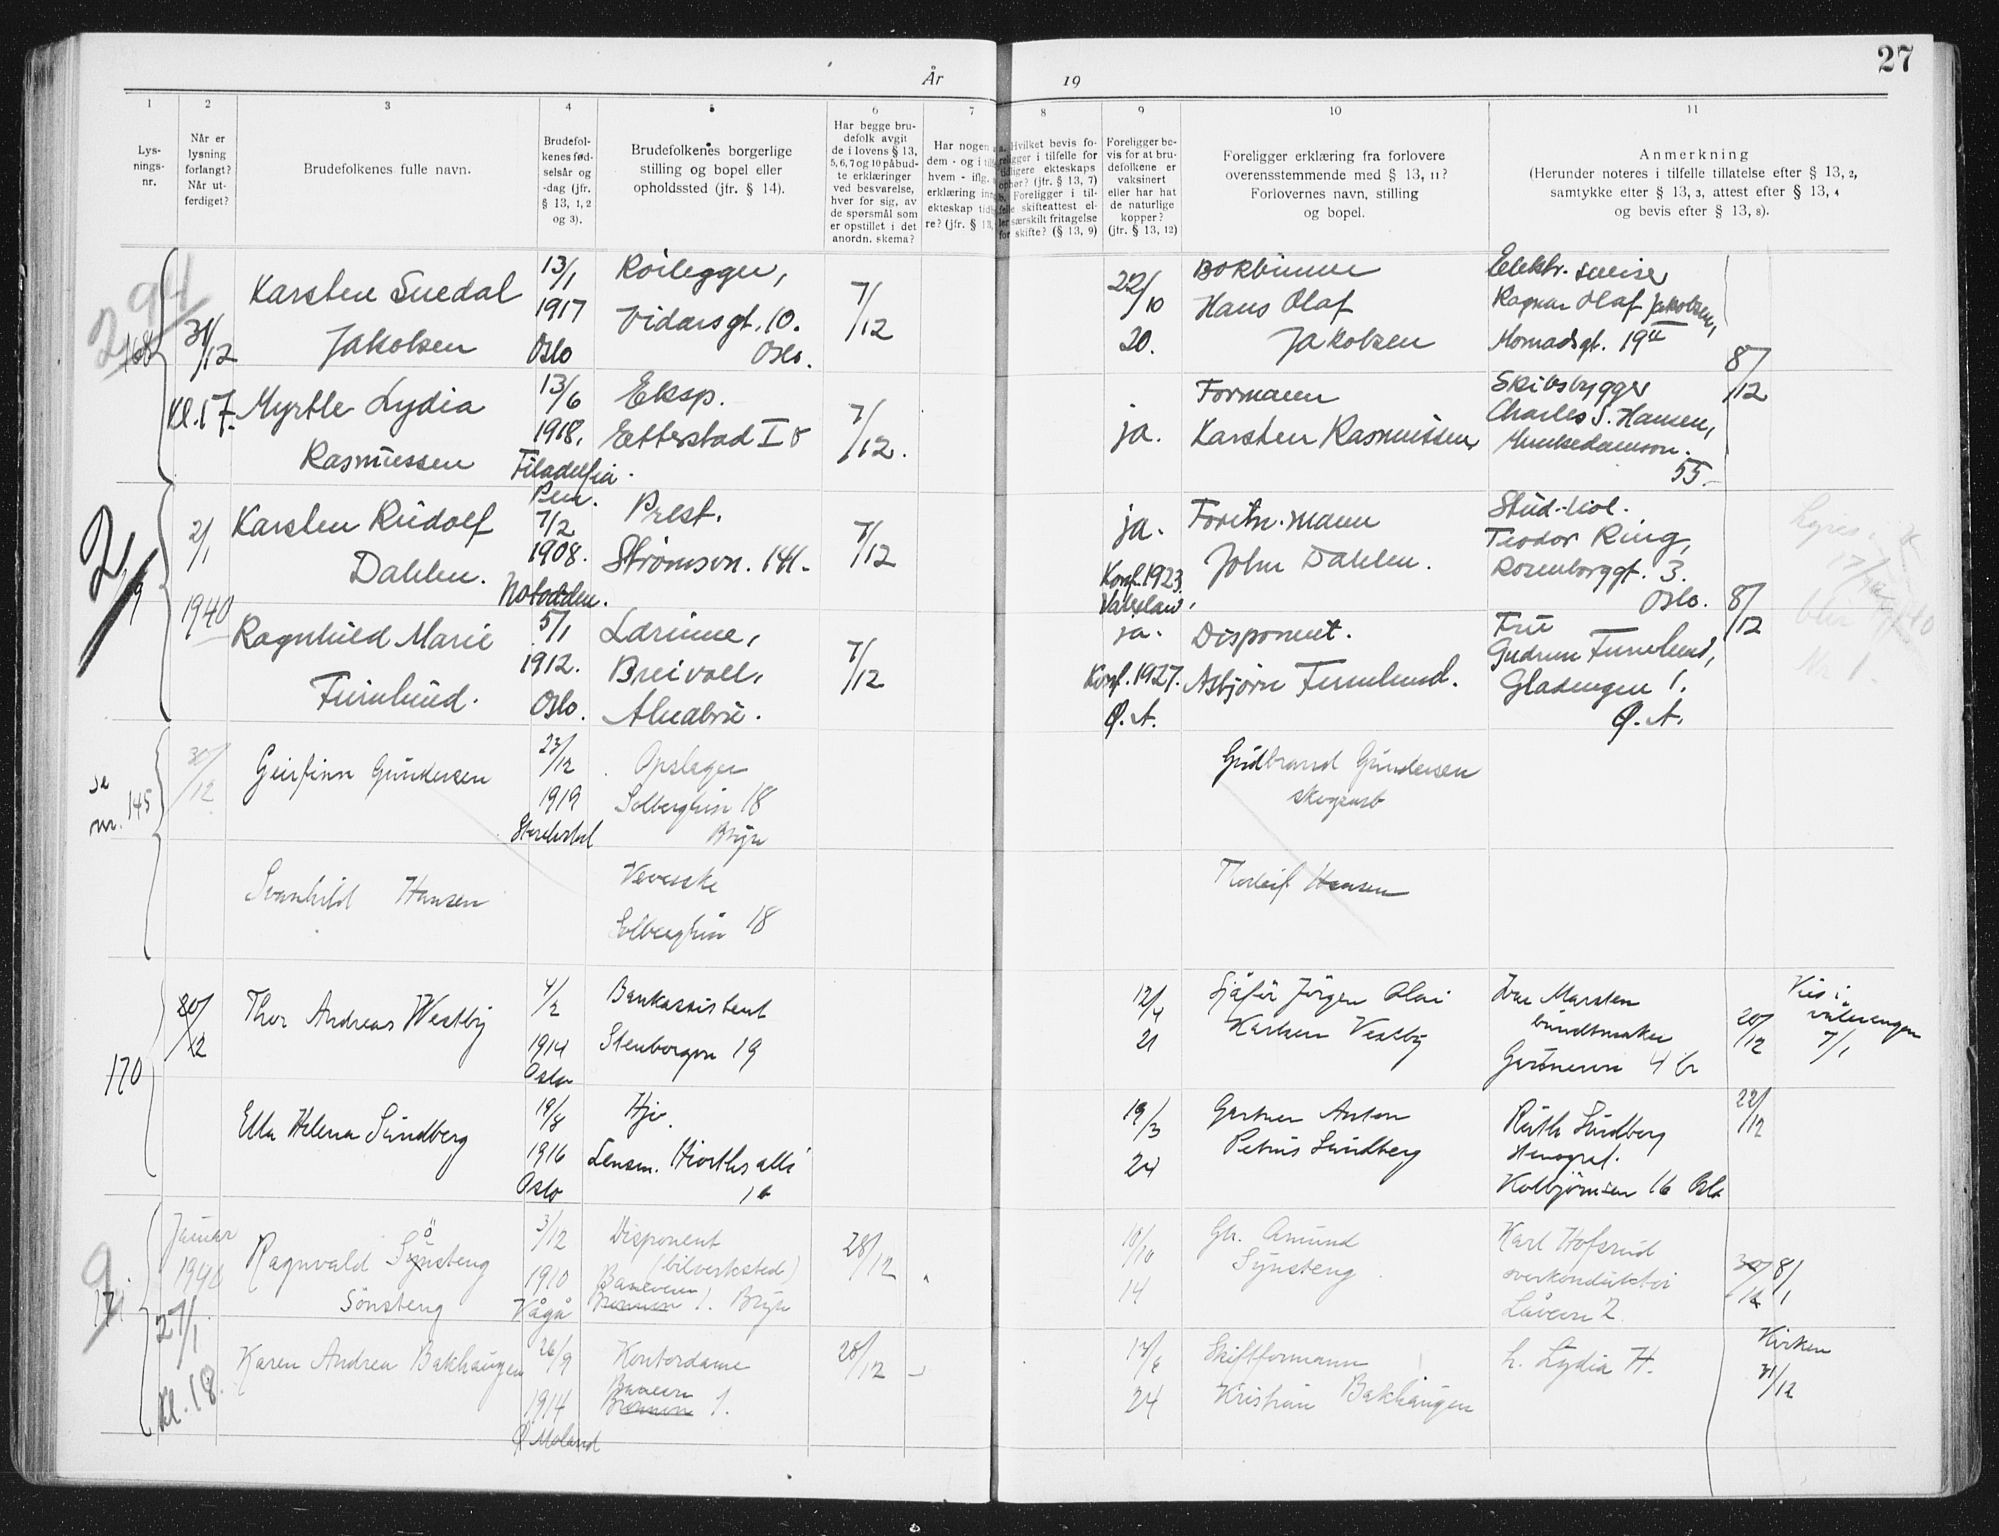 27
År
19
1
2
3
4
5
6
7
8
9
10
11
Lys-
nings-
nr.
Når er
lysning
forlangt?
Når ut-
ferdiget?
Brudefolkenes fulle navn.
Brudefol-
kenes fød-
selsår og
-dag (jfr.
§ 13, 1, 2
og 3).
Brudefolkenes borgerlige
stilling og bopel eller
opholdssted (jfr. § 14).
Har begge bru-
defolk avgit
de i lovens § 13,
5, 6, 7 og 10 påbud-
te erklæringer
ved besvarelse,
hver for sig, av
de spørsmål som
er opstillet i det
anordn. skema?
Har nogen a
dem - og i
hvem - iflg.
erklæring inn
ekteskap tid
re? (jfr. § 13,
Hvilket bevis fo-
religger i tilfelle for
tidligere ekteskaps
ophør? (jfr. § 13, 7)
b. Foreligger i til-
felle skifteattest el-
ler særskilt fritagelse
for skifte? (§ 13, 9)
Foreligger be-
vis for at bru-
defolkene er
vaksinert
eller har hat
de naturlige
kopper?
(jfr. § 13, 12)
Foreligger erklæring fra forlovere
overensstemmende med § 13, 11?
Forlovernes navn, stilling
og bopel.
Anmerkning
(Herunder noteres i tilfelle tillatelse efter § 13, 2,
samtykke efter § 13, 3, attest efter § 13, 4
og bevis efter § 13, 8).
294
168
31/12
Kl. 17.
Karsten Suedal
Jakobsen
13/1
1917
Oslo
Rørlegger,
Vidarsgt. 10.
Oslo.
7/12
22/10
20.
Bokbinder
Hans Olaf
Jakobsen
Elektr. sveiser
Ragnar Olaf Jakobsen,
Mornadsgt. 19 II
8/12
Myrtle Lydia
Rasmussen
13/6
1918,
Filadelfia.
Pen.
Eksp.
Etterstad I o
7/12.
ja.
Formann
Karsten Rasmussen
Skibsbygger
Charles S. Hansen,
Munkedamsvn.
55.
2/
2/1
1940
Karsten Rudolf
Dahlen.
7/2
1908.
Notodden.
Prest.
Strømsvn. 141.
7/12
ja.
Konf. 1923
Vaterland,
Foretn. mann
John Dahlen.
Stud. tiol.
Teodor Ring,
Rosenborggt. 3.
Oslo.
8/12
Lyses i
17/12
blir
Nr 1.
Ragnhild Marie
Furulund.
5/1
1912.
Oslo.
Lærinne,
Breivoll,
Alnabru.
7/12
ja.
Konf. 1927.
Ø. A.
Disponent.
Asbjørn Furulund.
Fru
Gudrun Furulund,
Gladengen 1.
Ø. A.
se
nr. 145
30/12
Geirfinn Gundersen
23/12
1919
Opslager
Solberglien 18
Bryn
Gudbrand Gundersen
skogsarb
Svanhild Hansen
Veverske
Solberglien 18
Thorleif Hansen
170
20/12
Thor Andreas Westby
4/2
1914
Oslo
Bankassistent
Stenborgvn 19
12/4
21
Sjåfør Jørgen Olai
Karlsen Vestby
Ivar Marsten
bundtmaker
Gartnervn 4 b
20/12
Vies i
Vålerengen
7/1
Ella Helena Sundberg
19/8
1916
Oslo
Hjv.
Lensm. Hiorths alle
1 b
19/3
24
Gartner Anton
Petrus Sundberg
Ruth Sundberg
stenograf.
Kolbjørnsen 16 Oslo
22/12
9.
171
Januar
1940
27/1
Kl. 18.
Ragnvald Synsteng
ö
Sönsteng
3/12
1910
Vågå
Disponent
(bilverksted)
Baneveien
1. Bryn
28/12
10/10
14
Gb. Amund
Synsteng
Karl Hofsrud
overkonduktør
Låvevn 2.
30/12
8/1
Karen Andrea Bakhaugen
26/9
1914
Ø Moland
Kontordame
Banevn
1.
28/12
24
Skiftformann
Kristian Bakhaugen
h. Lydia H.
Kirken
31/12